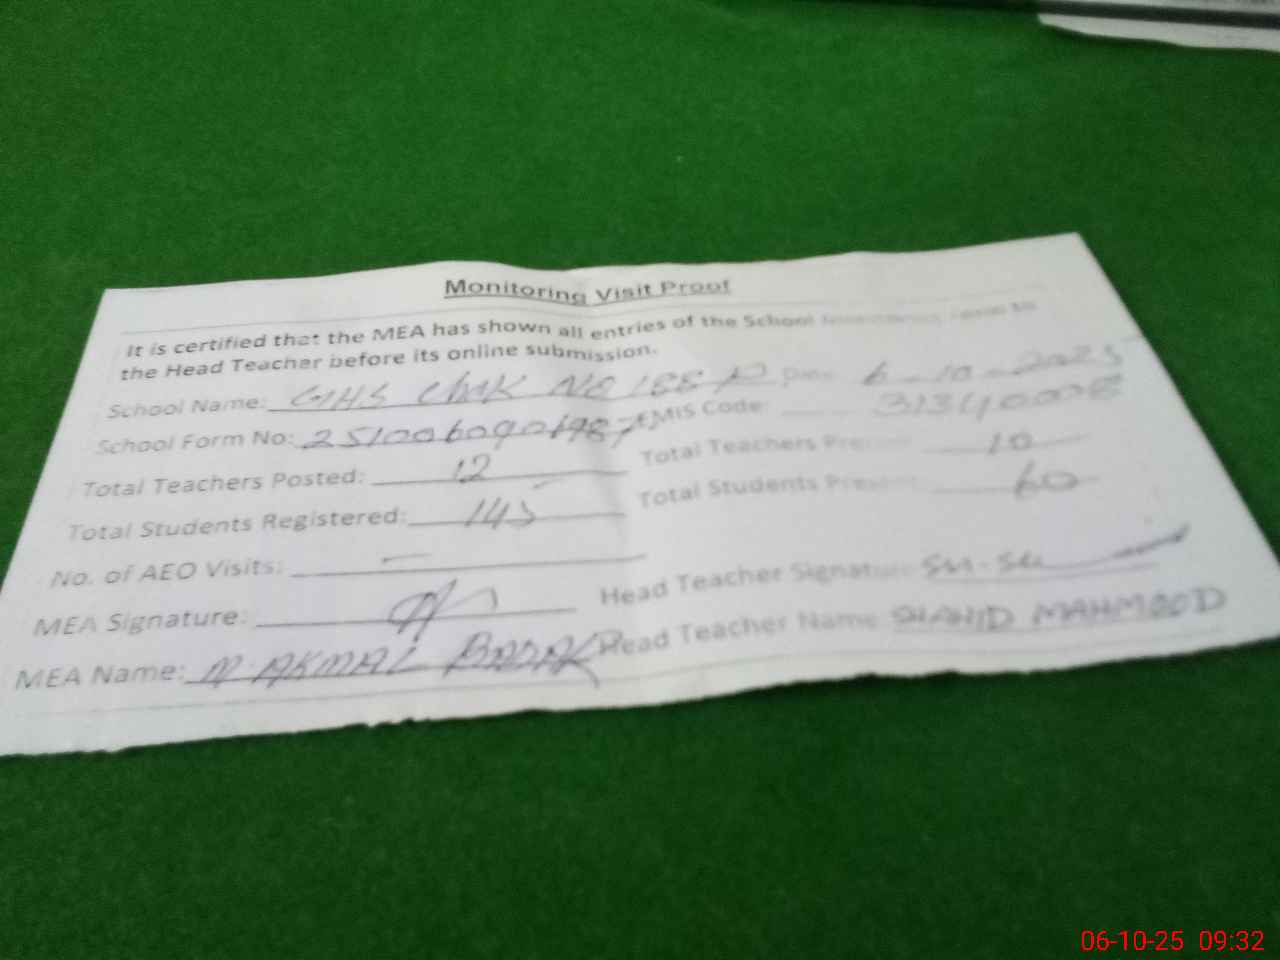 Monitoring Visit Proof
It is certified that the MEA has shown all entries of the School
the Head Teacher before its online submission.
School Name: GHS Chak No 188 P Date: 6-10-2025
School Form No: 2510060901987 EMIS Code: 31340008
Total Teachers Posted: 12 Total Teachers Present: 10
Total Students Registered: 145 Total Students Present: 60
No. of AEO Visits: —
MEA Signature: Head Teacher Signature:
MEA Name: M. AKMAL Head Teacher Name: SHAHID MAHMOOD
06-10-25 09:32